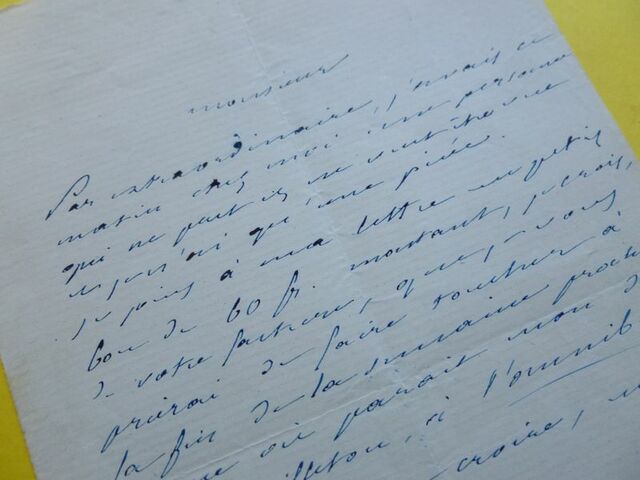 monsieur
Par extraordinaire, j'avais ce
matin chez moi une personne
qui ne peut et ne veut être vue
et je n'ai qu'une pièce.
je joins à ma lettre un petit
bon de 60 fr. montant, je crois,
de votre facture, que je vous
prierai de faire toucher à
la fin de la semaine proch
où paraît mon
à l'omnib
croire,